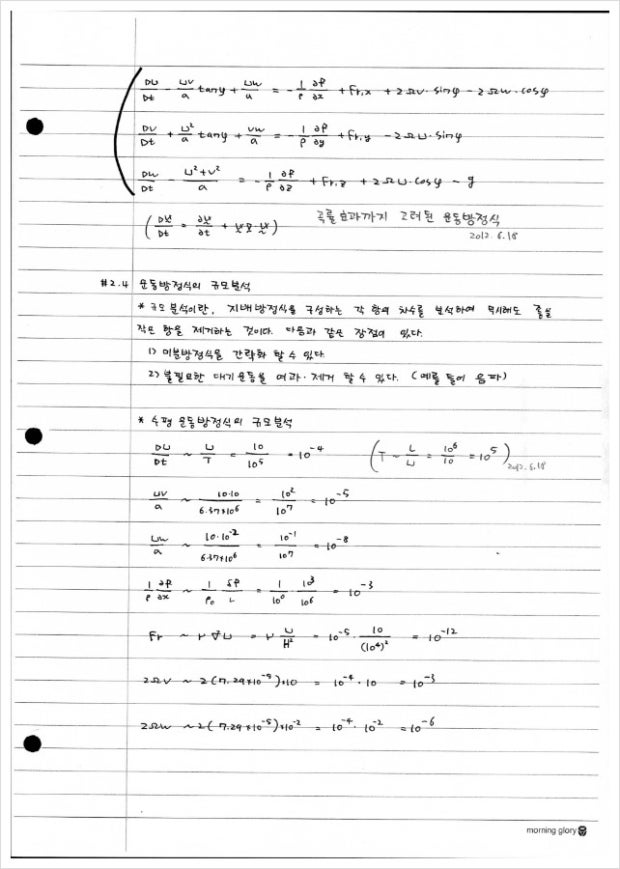 Du/Dt - uv/a tanφ + uw/a = - 1/ρ ∂p/∂x + Fr,x + 2Ωv·sinφ - 2Ωw·cosφ
Dv/Dt + u²/a tanφ + vw/a = - 1/ρ ∂p/∂y + Fr,y - 2Ωu·sinφ
Dw/Dt - u²+v²/a = - 1/ρ ∂p/∂z + Fr,z + 2Ωu·cosφ - g
곡률효과까지 고려된 운동방정식
2012.6.18
#2.4 운동방정식의 규모분석
* 규모분석이란, 지배방정식을 구성하는 각 항의 차수를 분석하여 무시해도 좋을
작은 항을 제거하는 것이다. 다음과 같은 장점이 있다.
1) 미분방정식을 간략화 할 수 있다.
2) 불필요한 대기운동을 여과·제거 할 수 있다. (예를 들어 음파)
* 수평 운동방정식의 규모분석
Du/Dt ~ U/T = 10/10⁵ = 10⁻⁴ (T ~ L/U = 10⁶/10 = 10⁵) 2012.6.18
uv/a ~ 10·10/6.37×10⁶ = 10²/10⁷ = 10⁻⁵
uw/a ~ 10·10⁻²/6.37×10⁶ = 10⁻¹/10⁷ = 10⁻⁸
1/ρ ∂p/∂x ~ 1/ρ₀ δP/L = 1/10⁰ · 10³/10⁶ = 10⁻³
Fr ~ ν∇²u = ν U/H² = 10⁻⁵ · 10/(10⁴)² = 10⁻¹²
2Ωv ~ 2(7.29×10⁻⁵)×10 = 10⁻⁴·10 = 10⁻³
2Ωw ~ 2(7.29×10⁻⁵)×10⁻² = 10⁻⁴·10⁻² = 10⁻⁶
morning glory